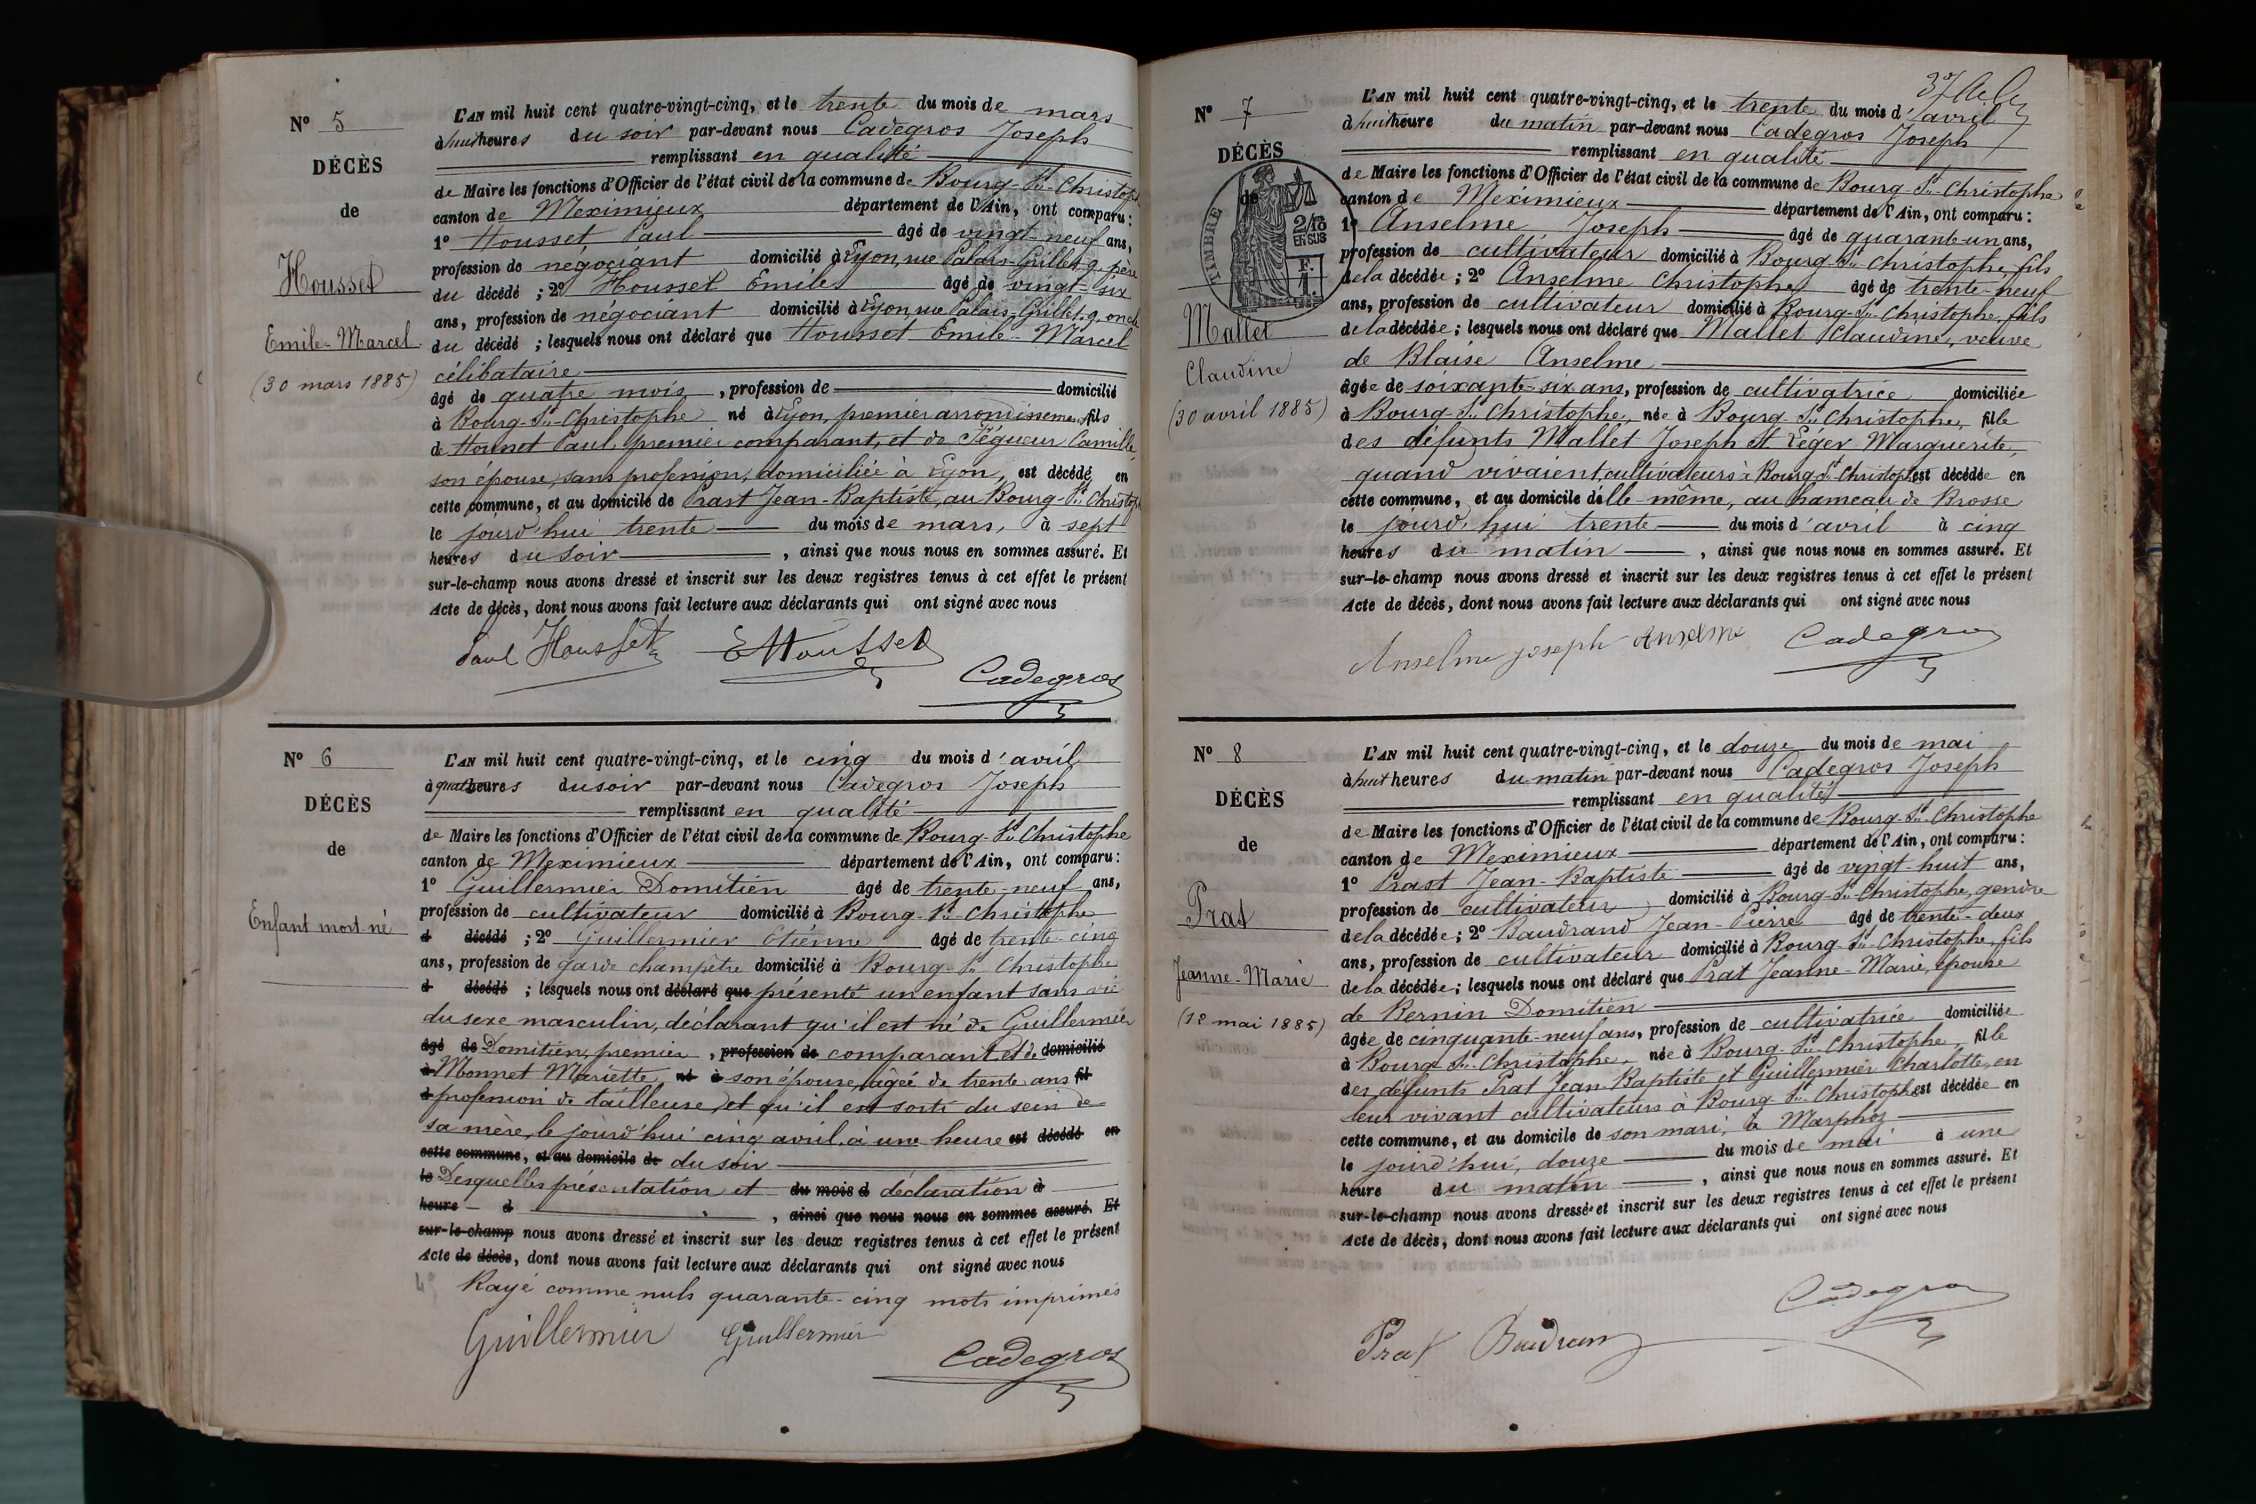 N° 5
DÉCÈS
de
Housset
Emile-Marcel
(30 mars 1885)
L'AN mil huit cent quatre-vingt-cinq, et le trente du mois de mars
à huit heures du soir par-devant nous Cadegros Joseph
remplissant en qualité
de Maire les fonctions d'Officier de l'état civil de la commune de Bourg-St-Christophe
canton de Meximieux département de l'Ain, ont comparu:
1° Housset Paul âgé de vingt-neuf ans,
profession de négociant domicilié à Lyon, rue Palais-Grillet, 9, père
du décédé ; 2° Housset Emile âgé de vingt-six
ans, profession de négociant domicilié à Lyon, rue Palais-Grillet, 9, oncle
du décédé ; lesquels nous ont déclaré que Housset Emile-Marcel
célibataire
âgé de quatre mois , profession de domicilié
à Bourg-St-Christophe né à Lyon, premier arrondissement, fils
de Housset Paul, premier comparant, et de Tégueur Camille,
son épouse, sans profession, domiciliée à Lyon, est décédé en
cette commune, et au domicile de Prast Jean-Baptiste, au Bourg-St-Christophe
le jourd'hui trente du mois de mars, à sept
heures du soir , ainsi que nous nous en sommes assuré. Et
sur-le-champ nous avons dressé et inscrit sur les deux registres tenus à cet effet le présent
Acte de décès, dont nous avons fait lecture aux déclarants qui ont signé avec nous
Paul Housset E Housset
Cadegros
N° 6
DÉCÈS
de
Enfant mort-né
L'AN mil huit cent quatre-vingt-cinq, et le cinq du mois d'avril
à quatre heures du soir par-devant nous Cadegros Joseph
remplissant en qualité
de Maire les fonctions d'Officier de l'état civil de la commune de Bourg-St-Christophe
canton de Meximieux département de l'Ain, ont comparu:
1° Guillermier Domitien âgé de trente-neuf ans,
profession de cultivateur domicilié à Bourg-St-Christophe
d décédé ; 2° Guillermier Etienne âgé de trente-cinq
ans, profession de garde champêtre domicilié à Bourg-St-Christophe
d décédé ; lesquels nous ont déclaré que présenté un enfant sans vie
du sexe masculin, déclarant qu'il est né de Guillermier
âgé de Domitien, premier , profession de comparant et de domicilié
à Monnet Mariette né à son épouse, âgée de trente ans fil
d profession de tailleuse, et qu'il est sorti du sein de
sa mère, le jourd'hui cinq avril, à une heure est décédé en
cette commune, et au domicile de du soir
le Desquelles présentation et du mois d déclaration à
heure d , ainsi que nous nous en sommes assuré. Et
sur-le-champ nous avons dressé et inscrit sur les deux registres tenus à cet effet le présent
Acte de décès, dont nous avons fait lecture aux déclarants qui ont signé avec nous
Rayé comme nuls quarante-cinq mots imprimés
Guillermier Guillermier
Cadegros
37
N° 7
DÉCÈS
de
TIMBRE
2/10
EN SUS
Mallet
Claudine
(30 avril 1885)
L'AN mil huit cent quatre-vingt-cinq, et le trente du mois d'avril
à huit heure du matin par-devant nous Cadegros Joseph
remplissant en qualité
de Maire les fonctions d'Officier de l'état civil de la commune de Bourg-St-Christophe
canton de Meximieux département de l'Ain, ont comparu:
1° Anselme Joseph âgé de quarante-un ans,
profession de cultivateur domicilié à Bourg-St-Christophe, fils
de la décédée ; 2° Anselme Christophe âgé de trente-neuf
ans, profession de cultivateur domicilié à Bourg-St-Christophe, fils
de la décédée ; lesquels nous ont déclaré que Mallet Claudine, veuve
de Blaise Anselme
âgée de soixante-six ans, profession de cultivatrice domiciliée
à Bourg-St-Christophe, née à Bourg-St-Christophe, fille
des défunts Mallet Joseph et Léger Marguerite,
quand vivaient, cultivateurs à Bourg-St-Christophe est décédée en
cette commune, et au domicile d'elle-même, au hameau de Brosse
le jourd'hui trente du mois d'avril à cinq
heures du matin , ainsi que nous nous en sommes assuré. Et
sur-le-champ nous avons dressé et inscrit sur les deux registres tenus à cet effet le présent
Acte de décès, dont nous avons fait lecture aux déclarants qui ont signé avec nous
Anselme joseph Anselme Cadegros
N° 8
DÉCÈS
de
Prat
Jeanne-Marie
(12 mai 1885)
L'AN mil huit cent quatre-vingt-cinq, et le douze du mois de mai
à huit heures du matin par-devant nous Cadegros Joseph
remplissant en qualité
de Maire les fonctions d'Officier de l'état civil de la commune de Bourg-St-Christophe
canton de Meximieux département de l'Ain, ont comparu:
1° Prast Jean-Baptiste âgé de vingt-huit ans,
profession de cultivateur domicilié à Bourg-St-Christophe, gendre
de la décédée ; 2° Baudrand Jean-Pierre âgé de trente-deux
ans, profession de cultivateur domicilié à Bourg-St-Christophe, fils
de la décédée ; lesquels nous ont déclaré que Prat Jeanne-Marie, épouse
de Bernin Domitien
âgée de cinquante-neuf ans, profession de cultivatrice domiciliée
à Bourg-St-Christophe, née à Bourg-St-Christophe, fille
des défunts Prat Jean-Baptiste et Guillermier Charlotte, en
leur vivant cultivateurs à Bourg-St-Christophe est décédée en
cette commune, et au domicile de son mari, à Marphoz
le jourd'hui, douze du mois de mai à une
heure du matin , ainsi que nous nous en sommes assuré. Et
sur-le-champ nous avons dressé et inscrit sur les deux registres tenus à cet effet le présent
Acte de décès, dont nous avons fait lecture aux déclarants qui ont signé avec nous
Cadegros
Prat Baudran